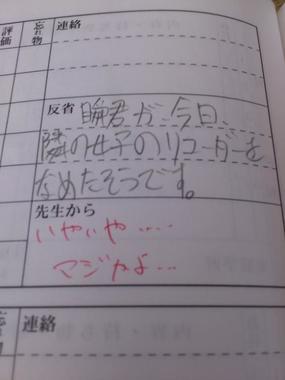 評価
忘れ物
連絡
反省 瞬君が今日、
隣の女子のリコーダーを
なめたそうです。
先生から
いやいや……
マジかよ…
連絡